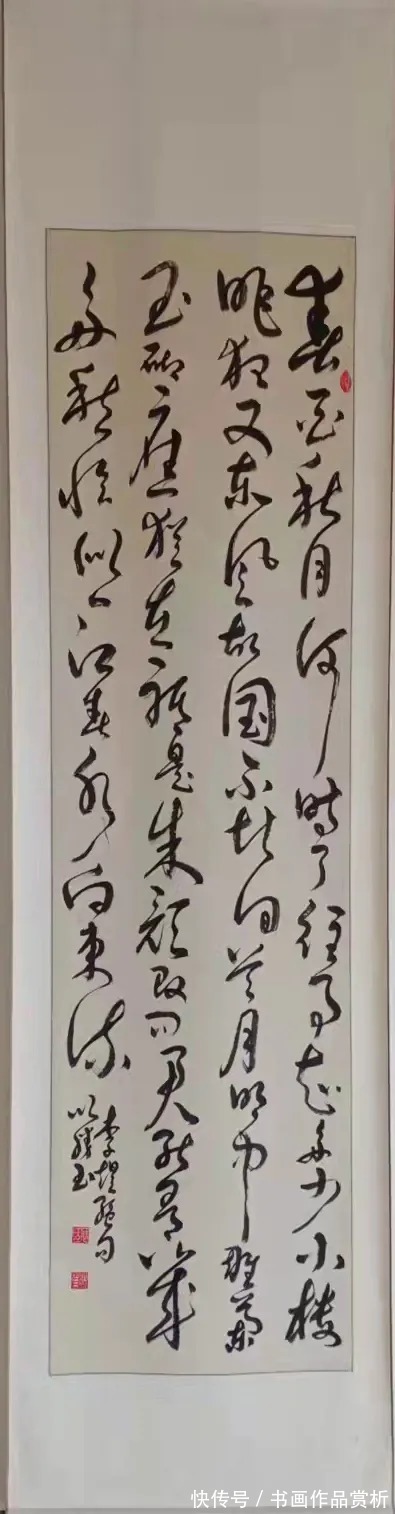 春花秋月何時了往事知多少小樓
昨夜又東風故国不堪回首月明中雕闌
玉砌應猶在祇是朱顏改問君能有幾
多愁恰似一江春水向東流
李煜詞句
快传号 / 书画作品赏析